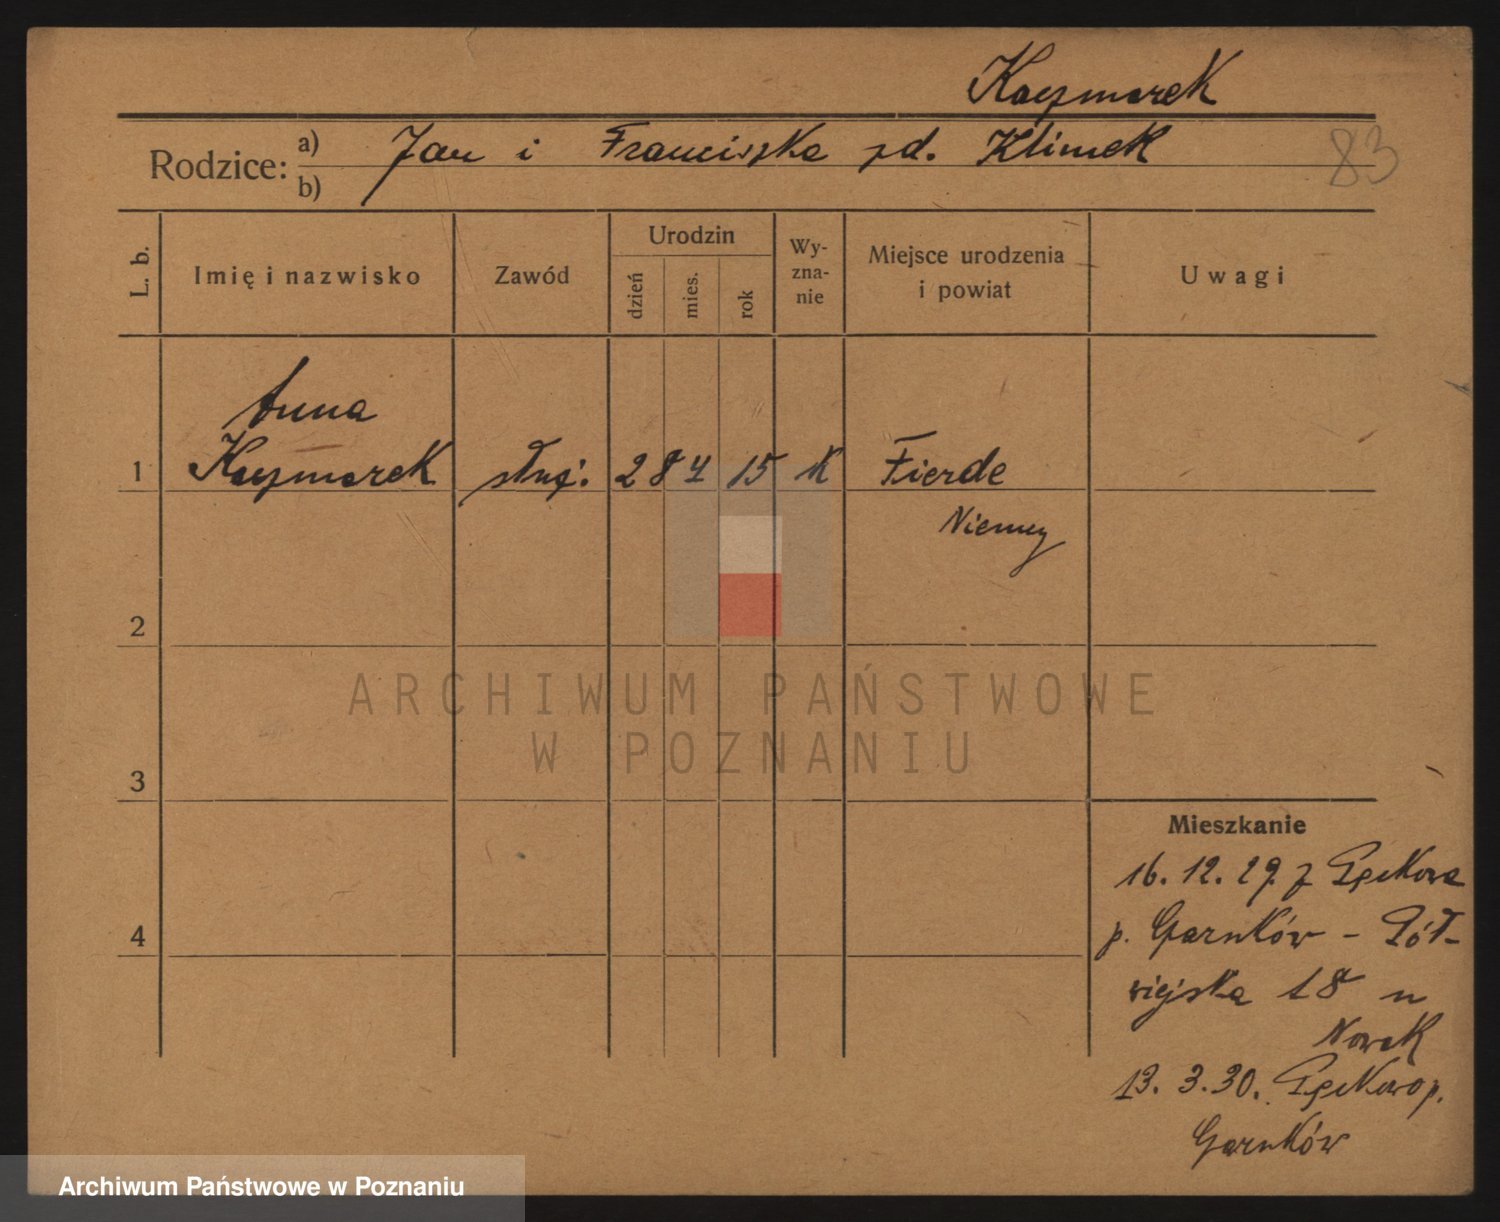 Kaczmarek
Rodzice: a) Jan i Franciszka zd. Klimek
b)
83
L. b.
Imię i nazwisko
Zawód
Urodzin
dzień
mies.
rok
Wy-
zna-
nie
Miejsce urodzenia
i powiat
Uwagi
Anna
1 Kaczmarek służ. 28 4 15 K Fierde
Niemcy
2
3
4
Mieszkanie
16. 12. 29 z
p. Czarnków - Pół-
wiejska 18 u
Nowak
13. 3. 30. p.
Czarnków
ARCHIWUM PAŃSTWOWE
W POZNANIU
Archiwum Państwowe w Poznaniu